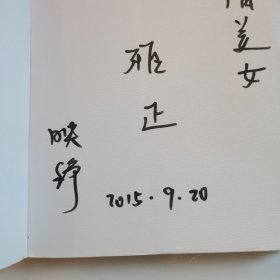 美女
雅正
映铮
2015.9.20